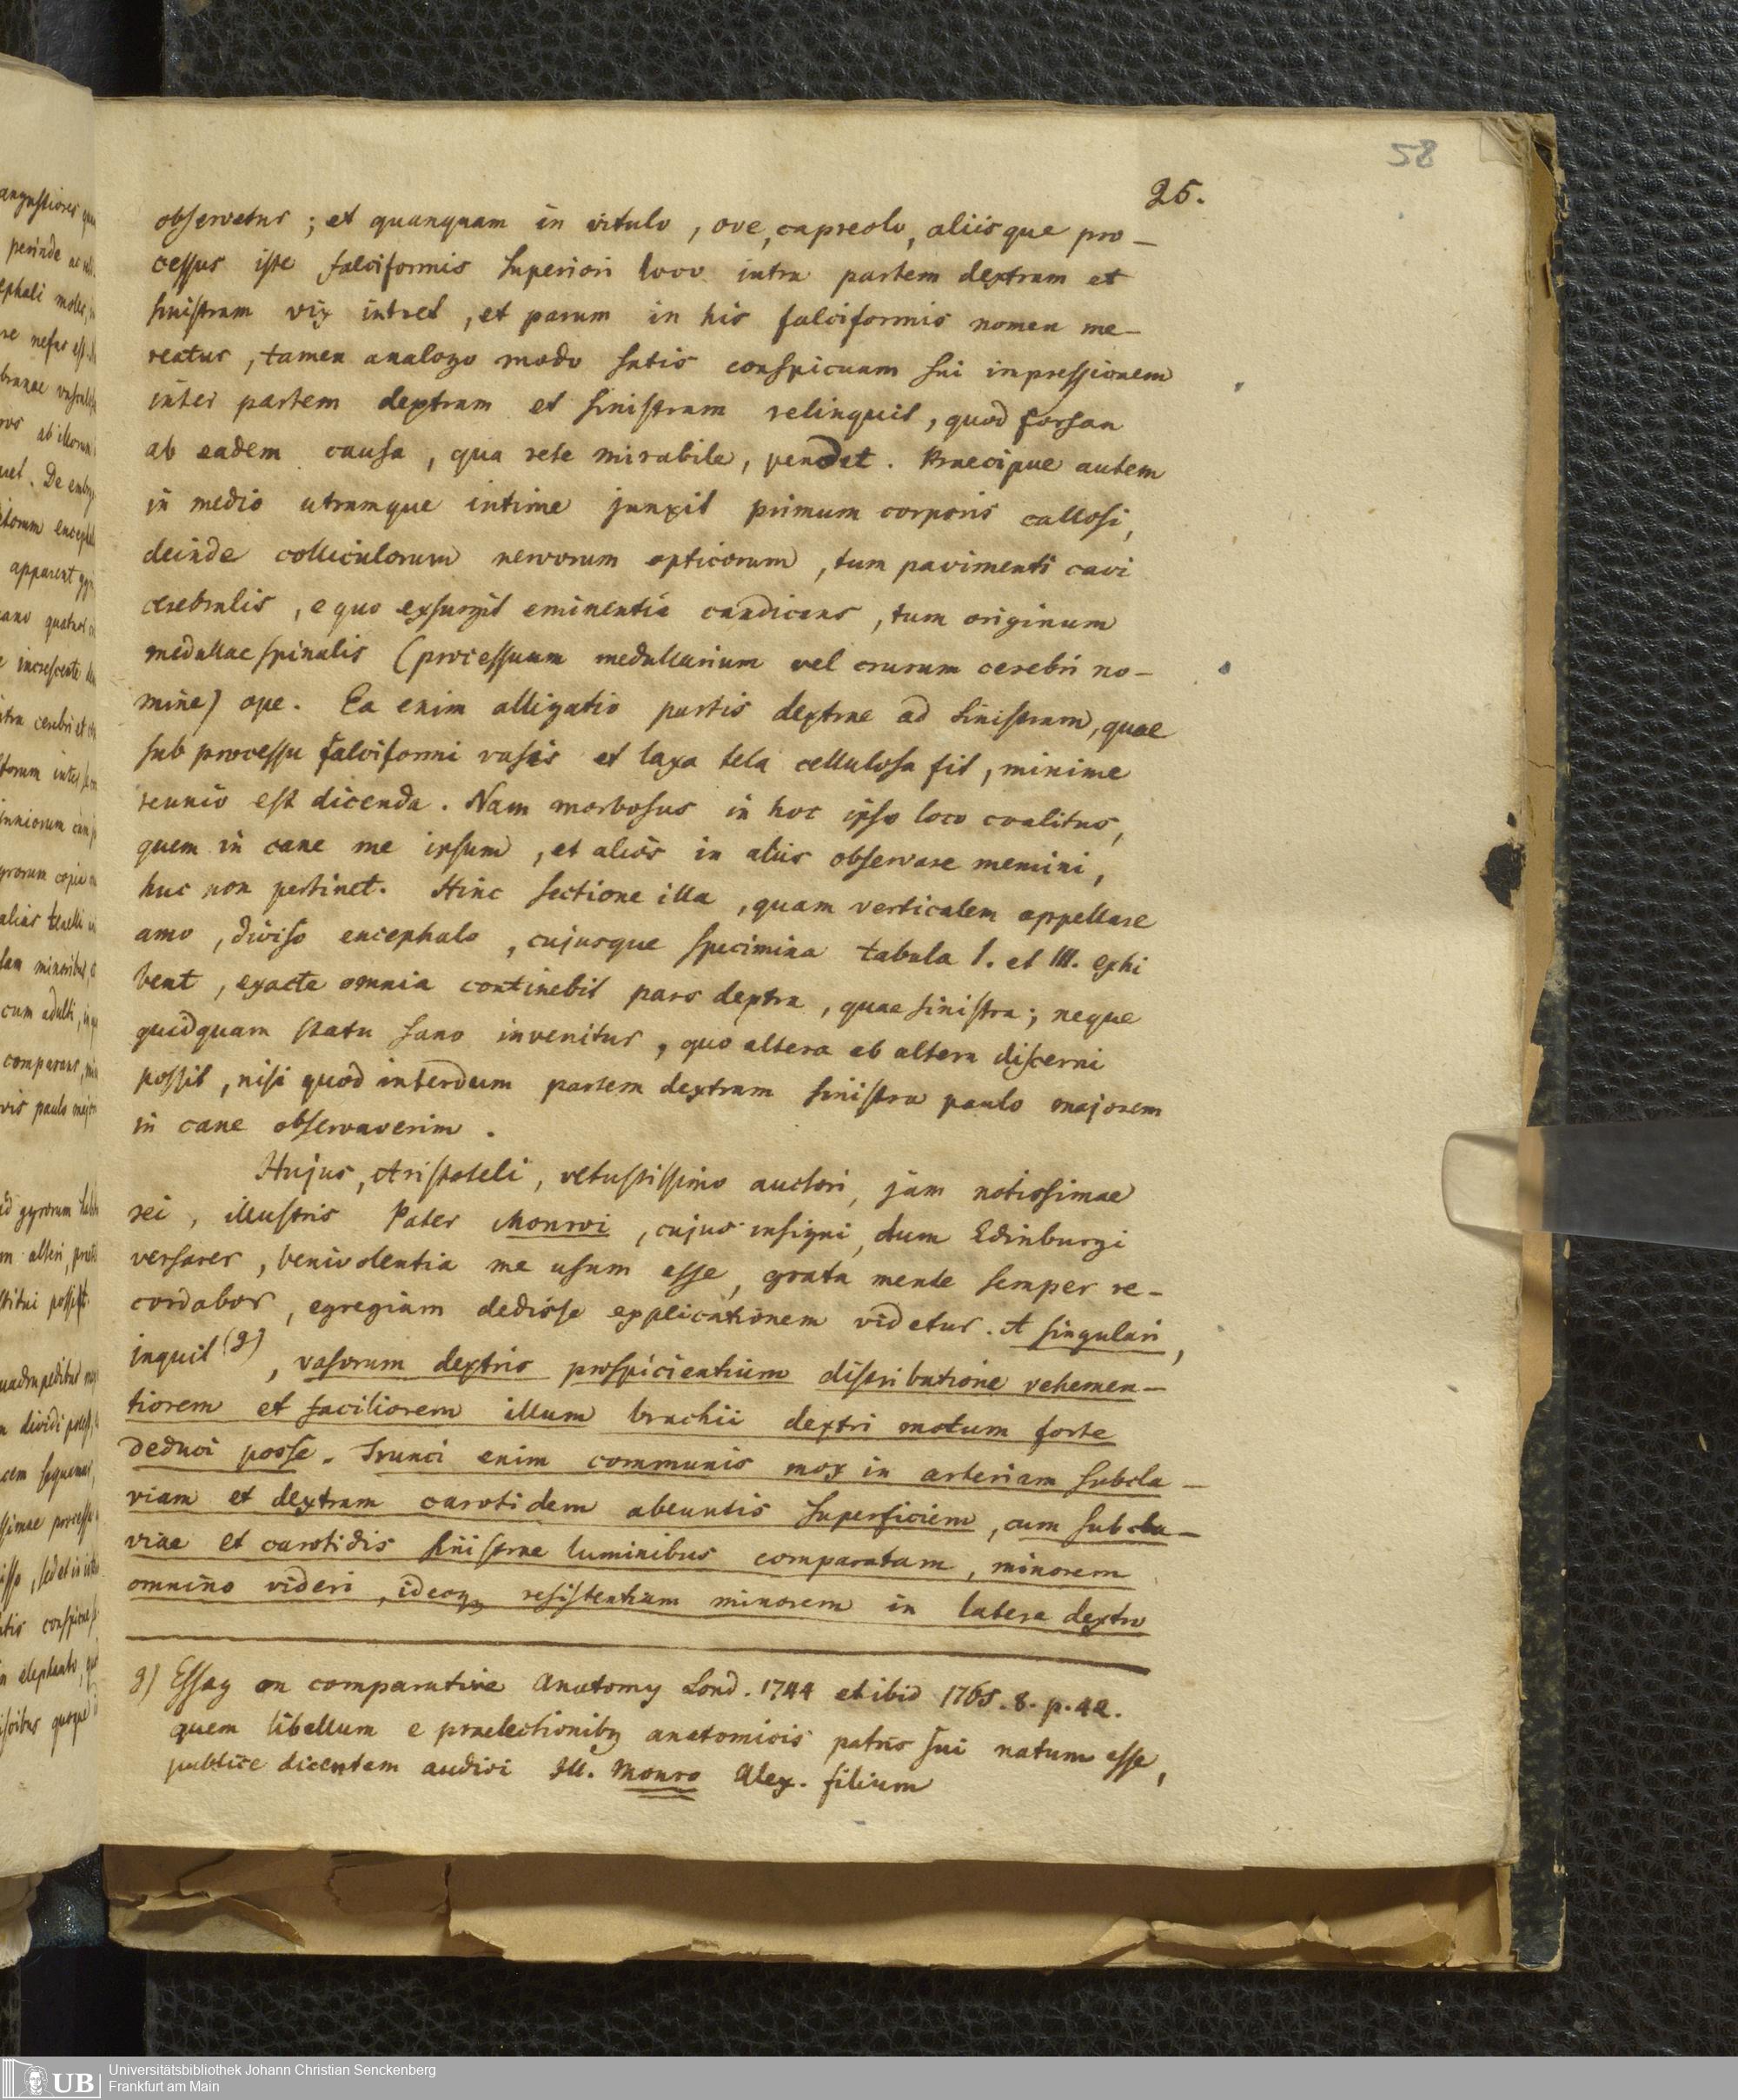 58
25.
observetur; et quanquam in vitulo, ove, capreolo, aliisque pro-
cessus iste falciformis superiori loco intra partem dextram et
sinistram vix intret, et parum in his falciformis nomen me-
reatur, tamen analogo modo satis conspicuam sui inpressionem
inter partem dextram et sinistram relinquit, quod forsan
ab eadem causa, qua rete mirabile, pendet. Praecipue autem
in medio utramque intime junxit primum corporis callosi,
deinde colliculorum nervorum opticorum, tum pavimenti cavi
cerebralis, e quo exsurgit eminentia candicans, tum originum
medullae spinalis (processuum medullarium vel crurum cerebri no-
mine) ope. Ea enim alligatio partis dextrae ad sinistram, quae
sub processu falciformi vasis et laxa tela cellulosa fit, minime
reunio est dicenda. Nam morbosus in hoc ipso loco coalitus,
quem in cane me ipsum, et alios in aliis observare memini,
huc non pertinet. Hinc sectione illa, quam verticalem appellare
amo, diviso encephalo, cujusque specimina tabula I. et III. exhi
bent, exacte omnia continebit pars dextra, quae sinistra; neque
quidquam statu sano invenitur, quo altera ab altera discerni
possit, nisi quod interdum partem dextram sinistra paulo majorem
in cane observaverim.
Hujus, Aristoteli, vetustissimo auctori, jam notissimae
rei, illustris Pater Monroi, cujus insigni, dum Edinburgi
versarer, benivolentia me usum esse, grata mente semper re-
cordabor, egregiam dedisse explicationem videtur. A singulari,
inquit (g), vasorum dextris prospicientium distributione vehemen-
tiorem et faciliorem illum brachii dextri motum forte
deduci posse. Trunci enim communis mox in arteriam subcla-
viam et dextram carotidem abeuntis superficiem, cum subcla-
viae et carotidis sinistrae luminibus comparatam, minorem
omnino videri, ideoq resistentiam minorem in latere dextro
g) Essay on comparative Anatomy Lond. 1744 et ibid 1765. 8. p. 42.
quem libellum e praelectionibq anatomicis patris sui natum esse,
publice dicentem audivi Ill. Monro Alex. filium
UB
Universitätsbibliothek Johann Christian Senckenberg
Frankfurt am Main